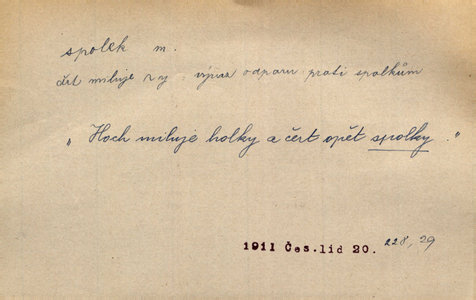 spolek m.
čert miluje s-y : výraz odporu proti spolkům
„Hoch miluje holky a čert opět spolky."
1911 Čes.lid 20. 228, 29